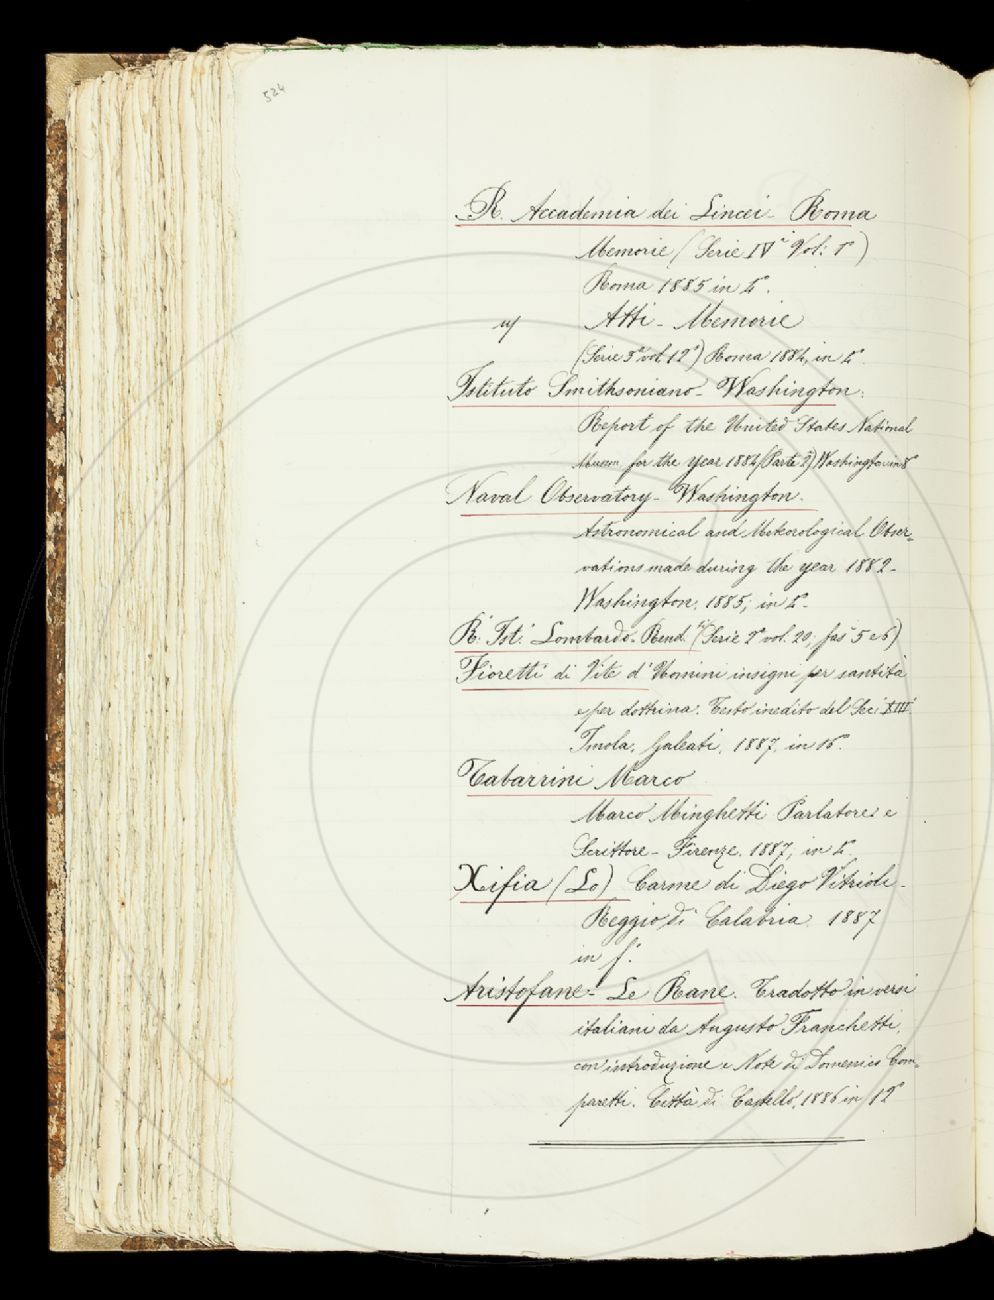 524
R. Accademia dei Lincei - Roma
Memorie (Serie IVª Vol: 1º)
Roma 1885 in 4º.
Atti - Memorie
(Serie 3ª vol. 12º) Roma 1884, in 4º.
Istituto Smithsoniano - Washington.
Report of the United States National
Museum for the year 1884 (Parte 2ª) Washington in 8º
Naval Observatory - Washington.
Astronomical and Meteorological Obser-
vations made during the year 1882 -
Washington, 1885; in 4º -
R. Ist. Lombardo - Rend. (Serie 2ª vol. 20, fasº 5 e 6)
Fioretti di Vite d'Uomini insigni per santità
e per dottrina. Testo inedito del Sec. XIII.
Imola, Galeati, 1887, in 16º.
Tabarrini Marco
Marco Minghetti Parlatore e
Scrittore - Firenze, 1887, in 4º.
Xifia (Lo) Carme di Diego Vitrioli -
Reggio di Calabria, 1887
in fº.
Aristofane - Le Rane. Tradotto in versi
italiani da Augusto Franchetti,
con introduzione e Note di Domenico Com-
paretti. Città di Castello, 1886 in 12º